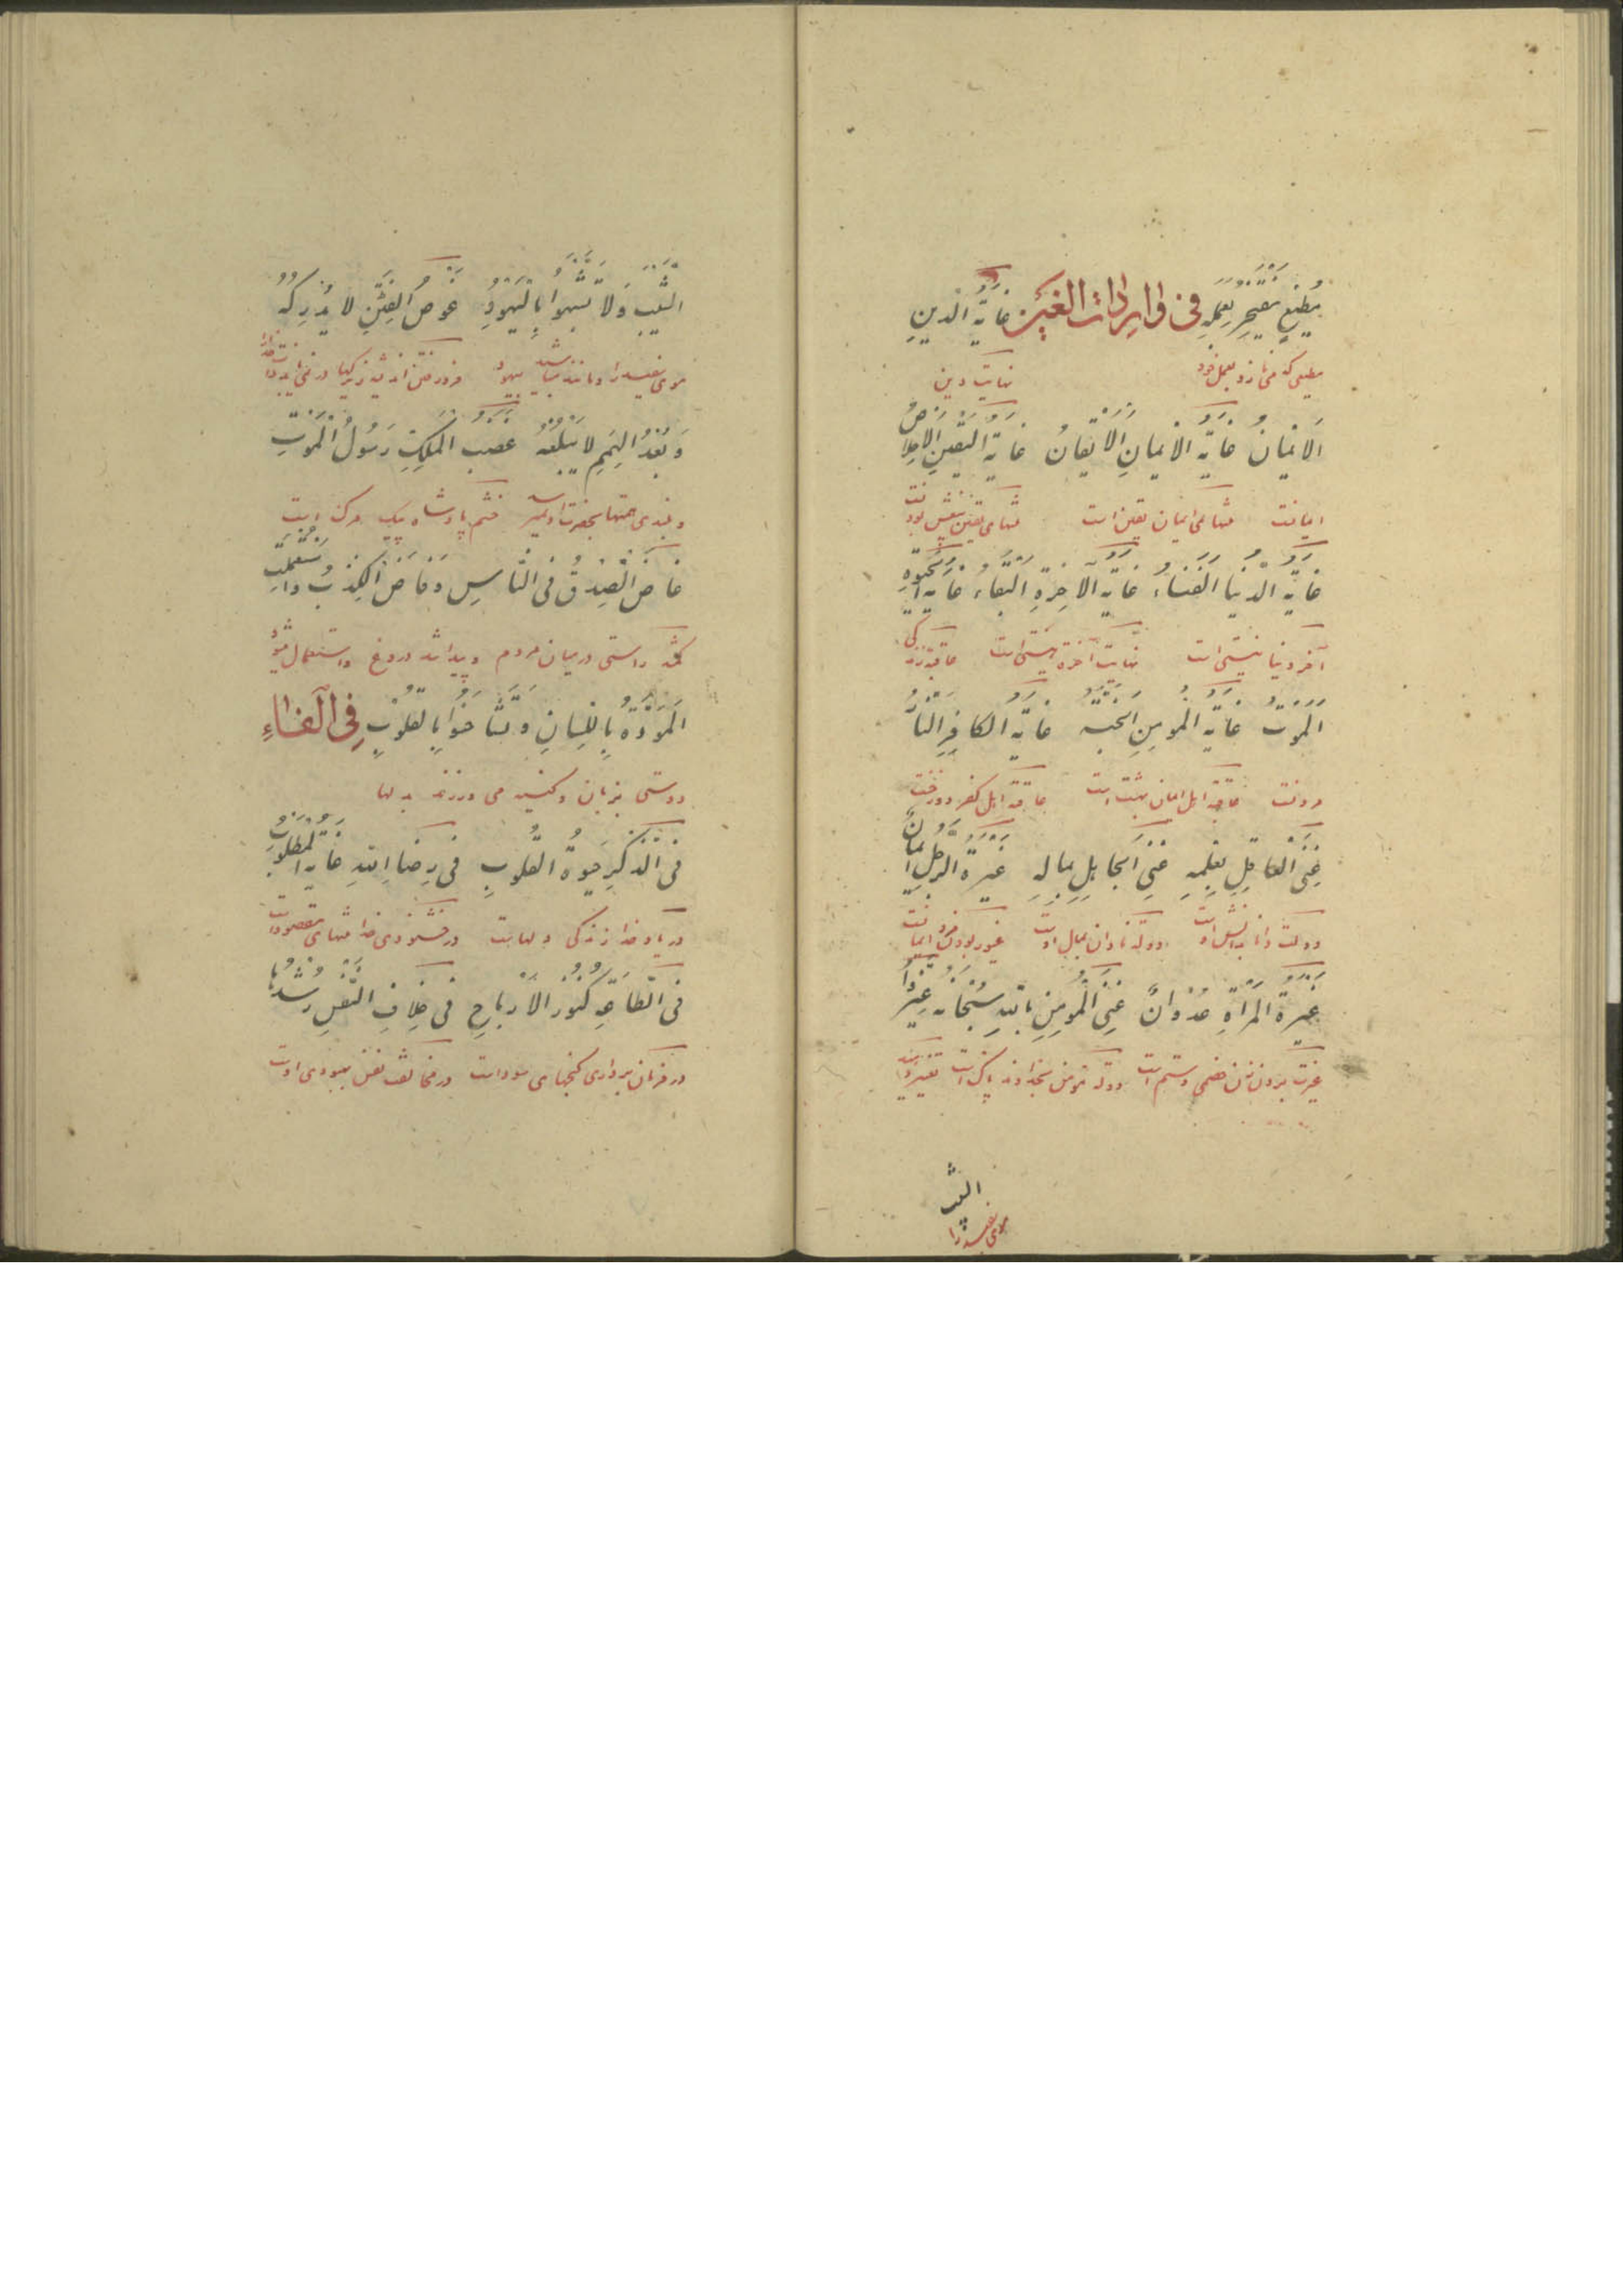 مُطِيعٍ مُفْتَخِرٍ بِعَمَلِهِ فی واردات الغین غَايَةُ الدِّينِ
مطیعی که می نازد بعمل خود نهایت دین
اَلْاِيمَانُ غَايَةُ الْاِيمَانِ الْاِيقَانُ غَايَةُ الْيَقِينِ الْاِخْلَاصُ
ایمانست منتهای ایمان یقین است منتهای یقین
غَايَةُ الدُّنْيَا الْفَنَاءُ غَايَةُ الْآخِرَةِ الْبَقَاءُ غَايَةُ الْحَيٰوةِ
آخر دنیا نیستی است نهایت آخرة هستی است عاقبة زندگی
اَلْمَوْتُ غَايَةُ الْمُؤْمِنِ الْجَنَّةُ غَايَةُ الْكَافِرِ النَّارُ
مردنست عاقبة اهل ایمان بهشت است عاقبة اهل کفر دوزخست
غِنَى الْعَاقِلِ بِعِلْمِهِ غِنَى الْجَاهِلِ بِمَالِهِ غَيْرَةُ الرَّجُلِ اِيمَانٌ
دولت دانا بدانش اوست دولة نادان بمال اوست غیور بودن مرد ایمانست
غَيْرَةُ الْمَرْأَةِ عُدْوَانٌ غِنَى الْمُؤْمِنِ بِاللّٰهِ سُبْحَانَهُ غَيِّرُوا
غیرت بردن زن خصمی و ستم است دولة مؤمن بخداوند پاک است تغییر دهید
الشیب
موی سفید را
الشَّيْبَ وَلَا تَشَبَّهُوا بِالْيَهُودِ غَوْصُ الْفِطَنِ لَا يُدْرِكُهُ
موی سفید را و مانند مباشید بیهود فرو رفتن اندیشه زیرکیها در نمی یابد
وَبُعْدُ الْهِمَمِ لَا يَبْلُغُهُ غَضَبُ الْمَلِكِ رَسُولُ الْمَوْتِ
و بلندی همتها بحضرت او نمیرسد خشم پادشاه پیک مرک است
غَاضَ الصِّدْقُ فِي النَّاسِ وَفَاضَ الْكِذْبُ وَاسْتُعْمِلَتِ
کم شد راستی در میان مردم و پیدا شد دروغ و استعمال میشود
الْمَوَدَّةُ بِاللِّسَانِ وَتَشَاحَنُوا بِالْقُلُوبِ فِی الْفَاءِ
دوستی بزبان و کینه می ورزند بدلها
فِي الذِّكْرِ حَيٰوةُ الْقُلُوبِ فِي رِضَا اللّٰهِ غَايَةُ الْمَطْلُوبِ
در یاد خدا زندگی دلهاست در خشنودی خدا منتهای مقصود است
فِي الطَّاعَةِ كُنُوزُ الْاَرْبَاحِ فِي خِلَافِ النَّفْسِ رُشْدُهَا
در فرمان برداری گنجهای سوداست در مخالفت نفس بهبودی اوست